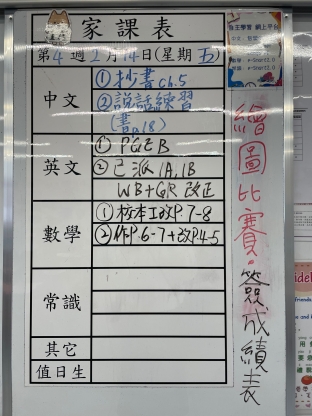 家課表
第4週2月14日(星期五)
中文
①抄書ch.5
②說話練習
(書p.18)
英文
①PGEB
②已派1A,1B
WB+GR改正
數學
①校本工改P.7-8
②作P.6-7+改P.4-5
常識
其它
值日生
繪圖比賽、簽成績表
自主學習 網上平台